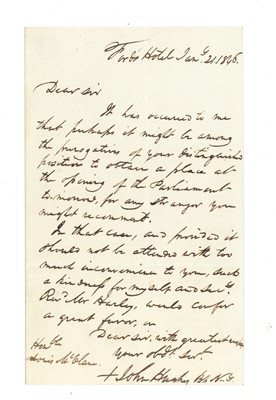 Fords Hotel Jany. 21. 1846.
Dear Sir
It has occured to me
that perhaps it might be among
the prerogatives of your distinguished
position to obtain a place at
the opening of the Parliament
tomorrow, for any stranger you
might recommend.
In that case, and provided it
should not be attended with too
much inconvenience to you, such
a kindness for myself and Secy.
Revd. Mr Harley, would confer
a great favor, on
Dear Sir, with great esteem
Your obdt. Servt.
+ John Hughes Bp. N. Y.
Honble
Louis McLane.